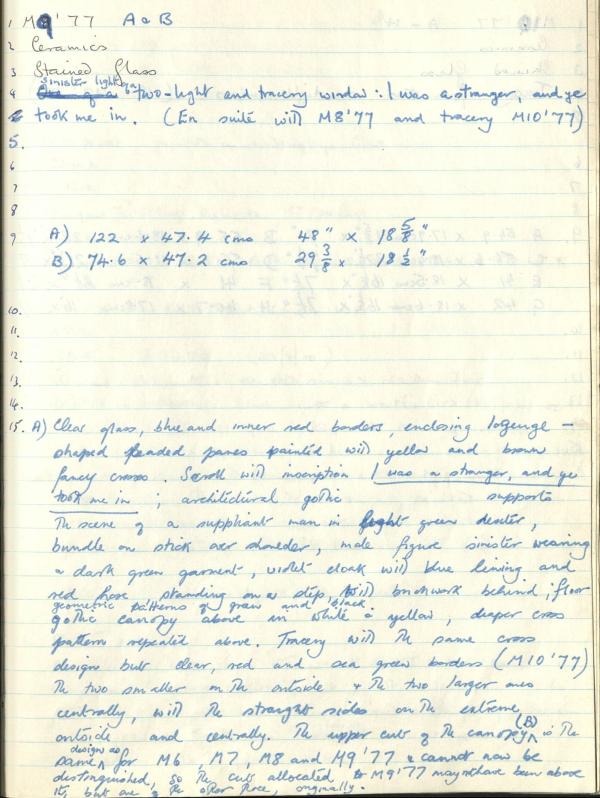 1 M9'77 A & B
2 Ceramics
3 Stained Glass
sinister light of a
4 One of a two-light and tracery window : I was a stranger, and ye
took me in. (En suite with M8'77 and tracery M10'77)
5.
6
7
8
9 A) 122 x 47.4 cms 48" x 18 5/8"
B) 74.6 x 47.2 cms 29 3/8 x 18 1/2"
10.
11.
12.
13.
14.
15. A) Clear glass, blue and inner red borders, enclosing lozenge -
shaped leaded panes painted with yellow and brown
fancy cross. Scroll with inscription I was a stranger, and ye
took me in ; architectural gothic supports
The scene of a suppliant man in light green dexter,
bundle on stick over shoulder, male figure sinister wearing
a dark green garment, violet cloak with blue lining and
red hose standing on a step, with brickwork behind ; floor
geometric patterns of green and black.
gothic canopy above in white & yellow, diaper cross
pattern repeated above. Tracery with the same cross
design but clear, red and sea green borders (M10'77)
The two smaller on the outside & the two larger ones
centrally, with the straight sides on the extreme
outside and centrally. The upper cuts of the canopy (B) is the
same design as for M6, M7, M8 and M9'77 & cannot now be
distinguished, so the cuts allocated to M9'77 may not have been above
it, but are of the other piece, originally.